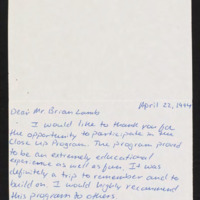 April 22, 1994
Dear Mr. Brian Lamb
- I would like to thank you for
the opportunity to participate in the
Close Up Program. The program proved
to be an extremely educational
experience as well as fun. It was
definitely a trip to remember and to
build on. I would highly recommend
this program to others.